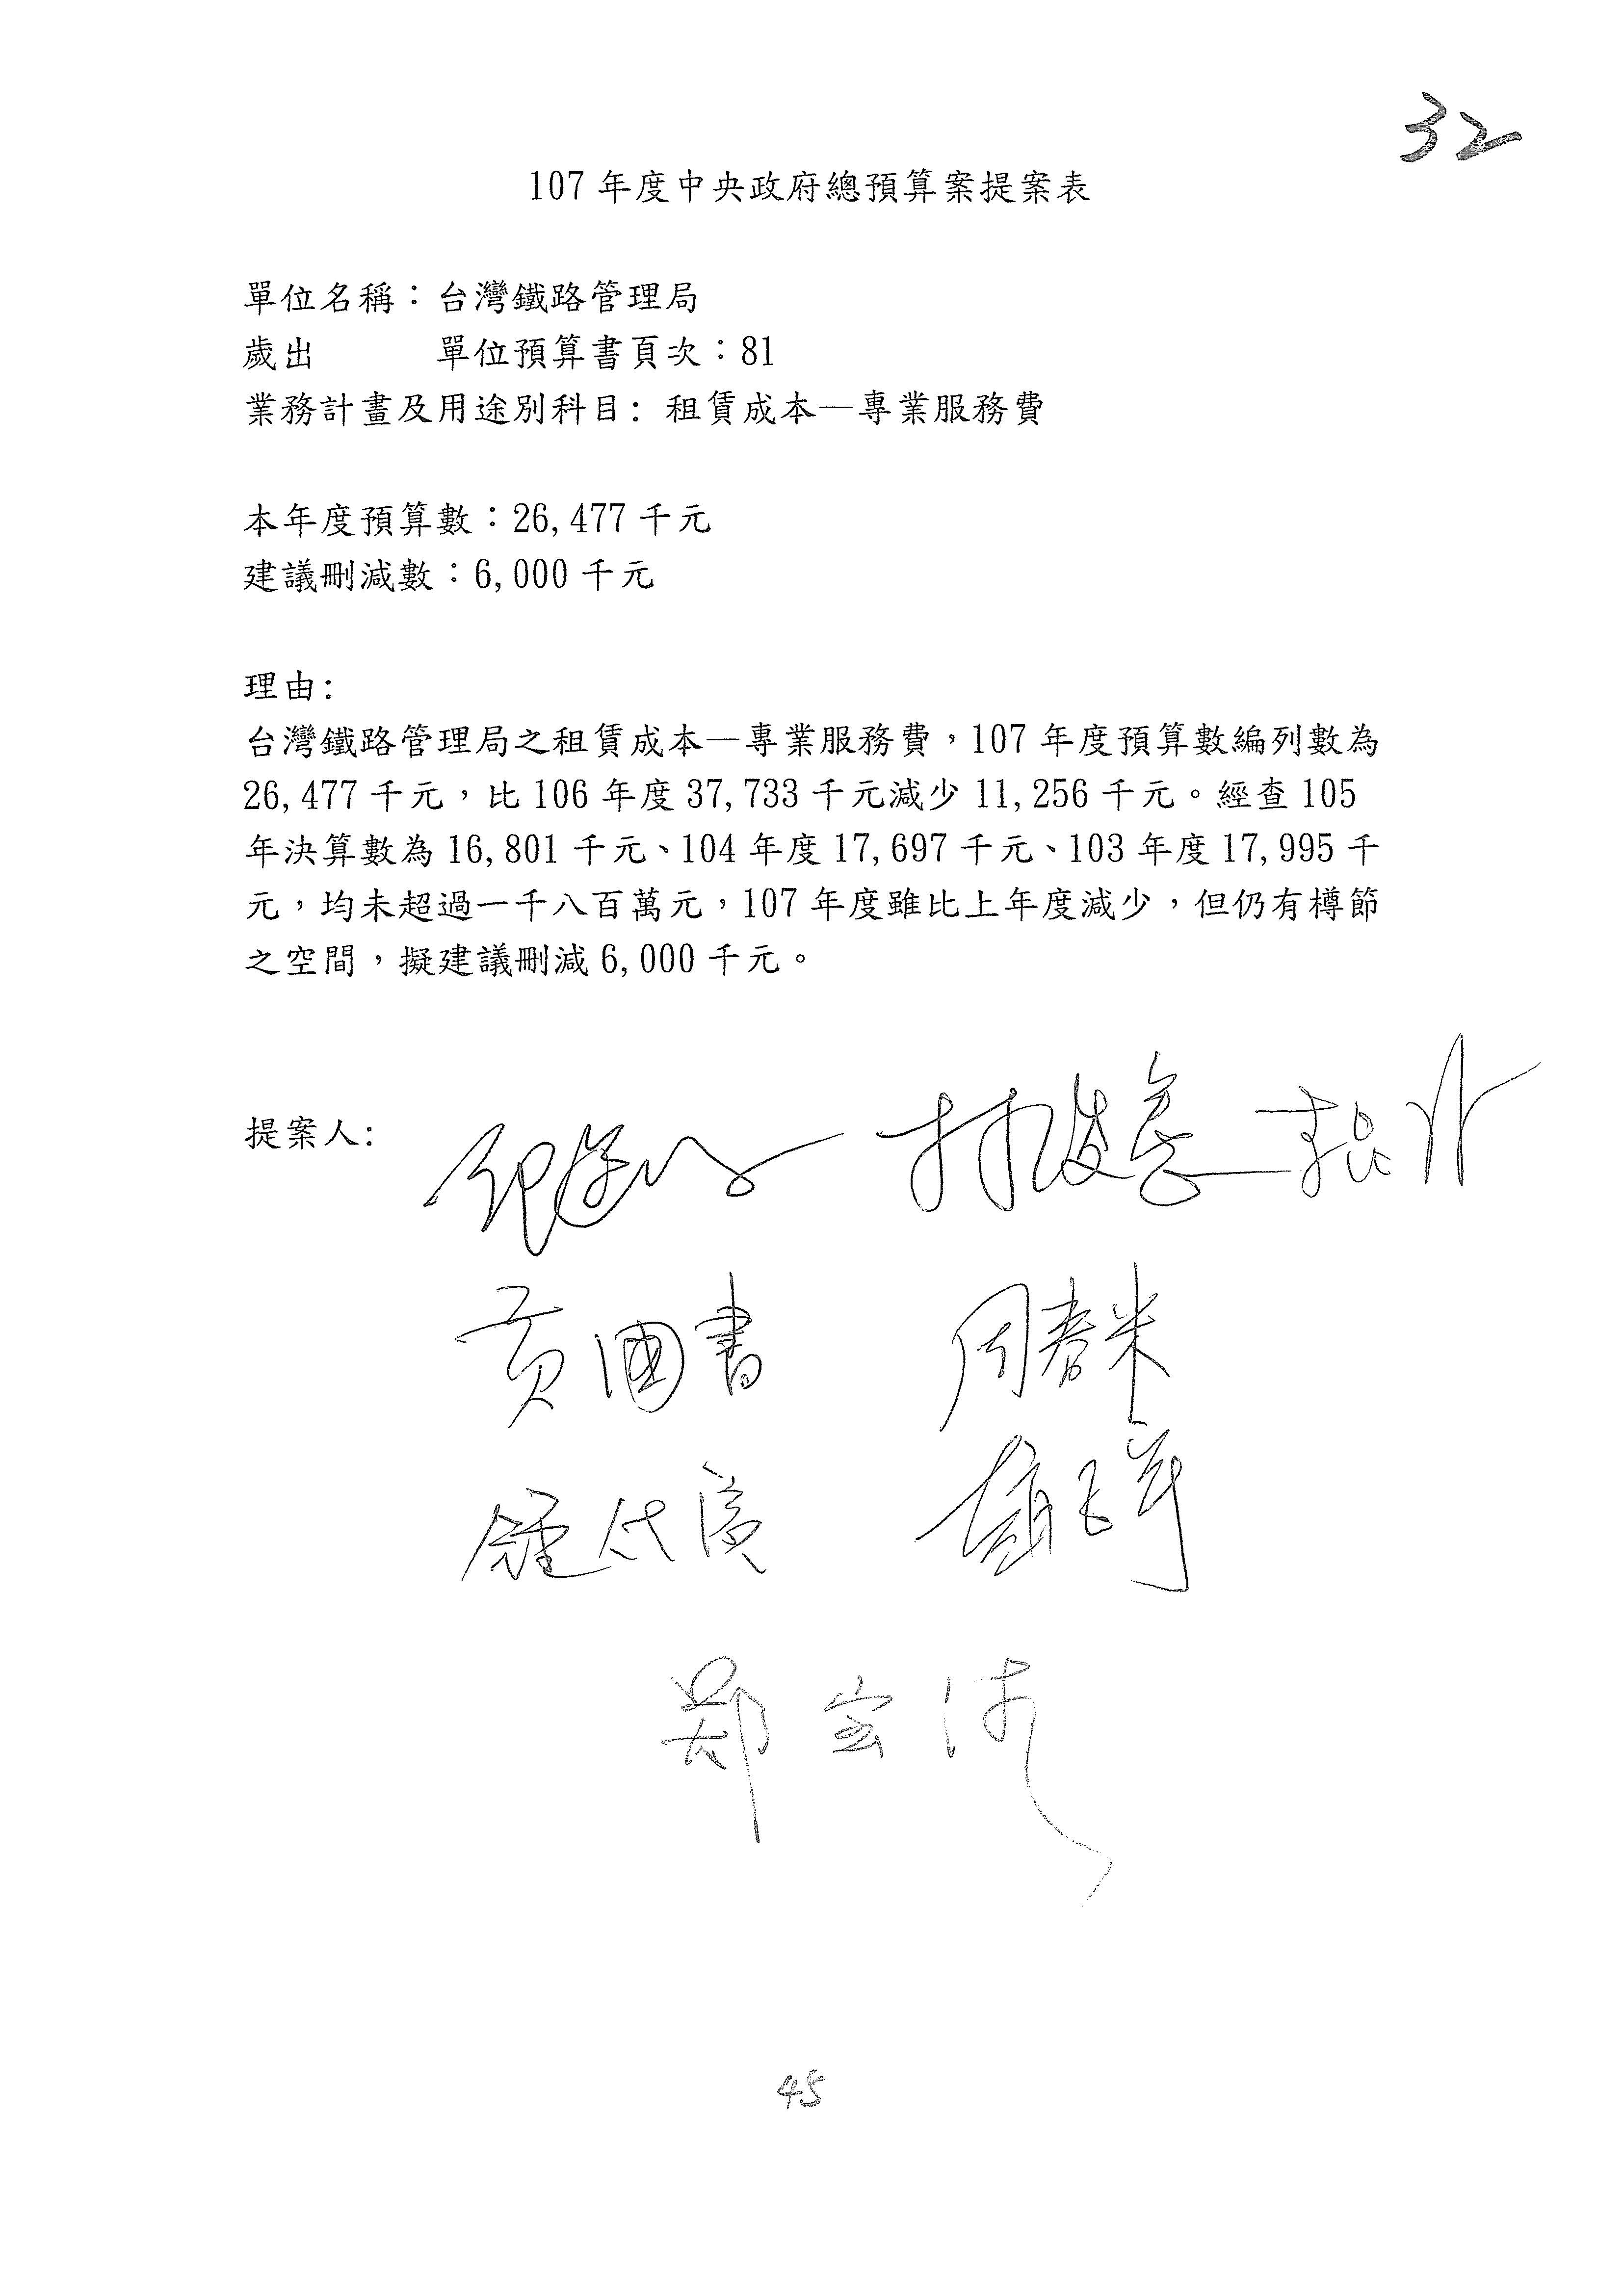 32
107 年度中央政府總預算案提案表
單位名稱：台灣鐵路管理局
歲出 單位預算書頁次：81
業務計畫及用途別科目: 租賃成本—專業服務費
本年度預算數：26,477 千元
建議刪減數：6,000 千元
理由:
台灣鐵路管理局之租賃成本—專業服務費，107 年度預算數編列數為
26,477 千元，比 106 年度 37,733 千元減少 11,256 千元。經查 105
年決算數為 16,801 千元、104 年度 17,697 千元、103 年度 17,995 千
元，均未超過一千八百萬元，107 年度雖比上年度減少，但仍有樽節
之空間，擬建議刪減 6,000 千元。
提案人: 林俊憲
黃國書 周春米
鄭
45